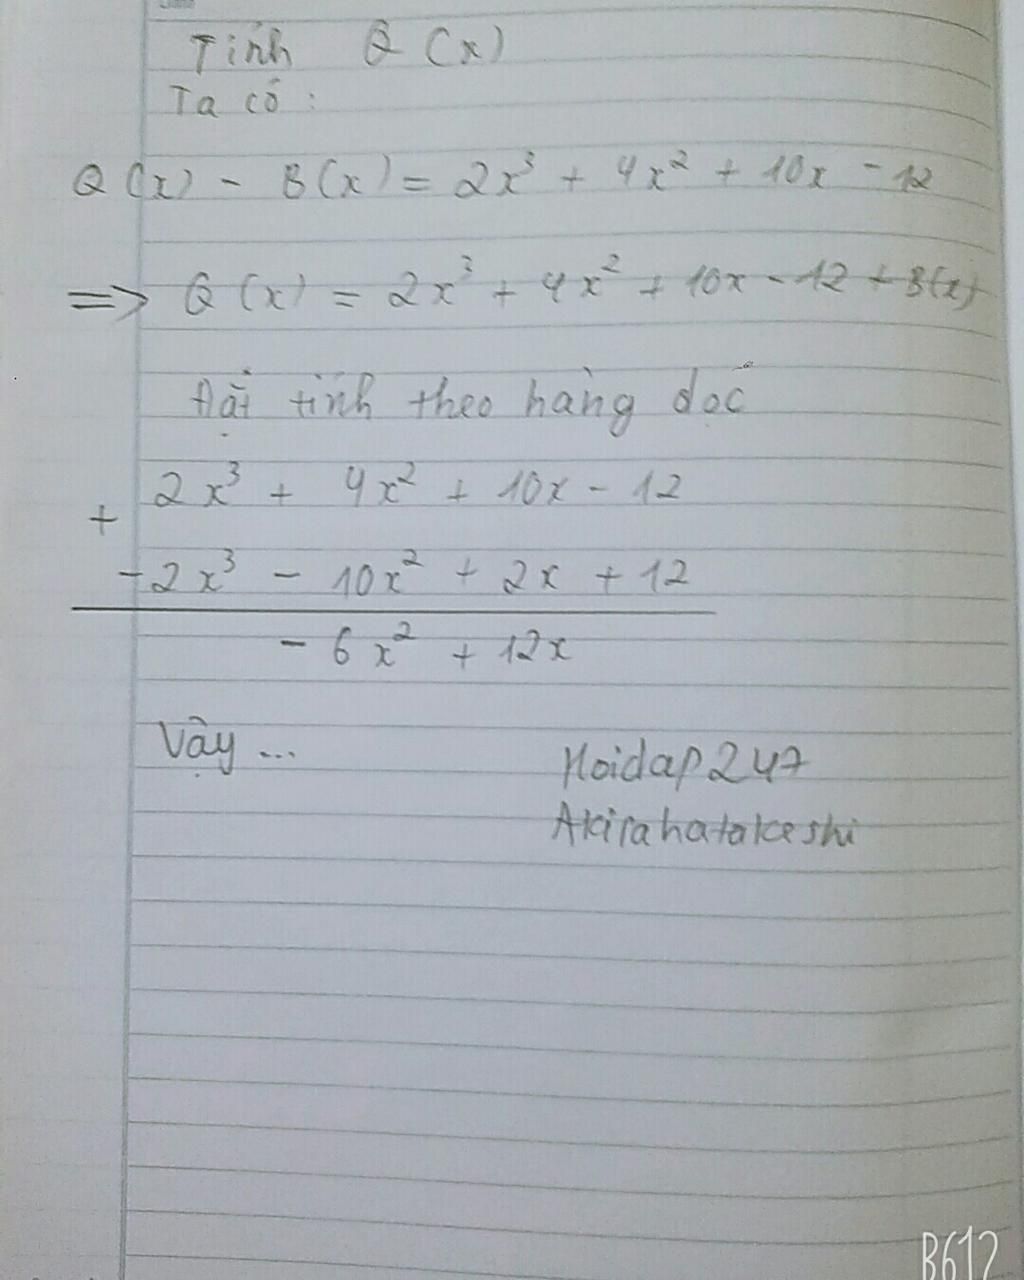 Tính Q(x)
Ta có :
Q(x) - B(x) = 2x³ + 4x² + 10x - 12
=> Q(x) = 2x³ + 4x² + 10x - 12 + B(x)
Đặt tính theo hàng dọc
2x³ + 4x² + 10x - 12
+
-2x³ - 10x² + 2x + 12
- 6x² + 12x
Vậy ...
Hoidap247
Akirahatakeshi
B612